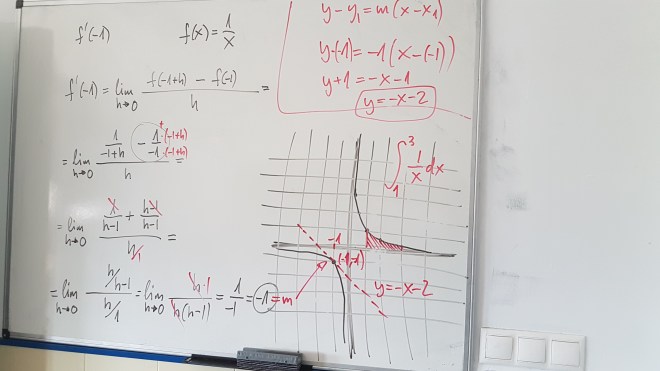 f'(-1)
f(x) = 1/x
f'(-1) = lim h→0 (f(-1+h) - f(-1))/h =
= lim h→0 (1/(-1+h) - 1/-1 · (-1+h)/·(-1+h))/h =
= lim h→0 (1/(h-1) + (h-1)/(h-1))/(h/1) =
= lim h→0 (h/(h-1))/(h/1) = lim h→0 h·1/(h(h-1)) = 1/-1 = -1 = m
y - y₁ = m(x - x₁)
y-(-1) = -1(x-(-1))
y+1 = -x-1
y = -x-2
∫₁³ 1/x dx
-1
(-1,-1)
y = -x-2